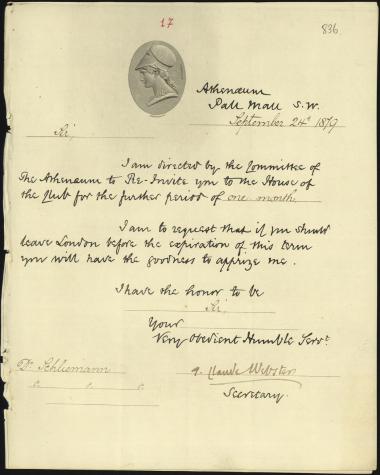 17
836
Athenæum
Pall Mall S.W.
September 24th 1879
Sir,
I am directed by the Committee of
The Athenæum to Re-Invite you to the House of
the Club for the further period of one month.
I am to request that if you should
leave London before the expiration of this term
you will have the goodness to apprize me.
I have the honor to be
Sir,
Your
Very Obedient Humble Servt.
Dr Schliemann
Claude Webster
Secretary.